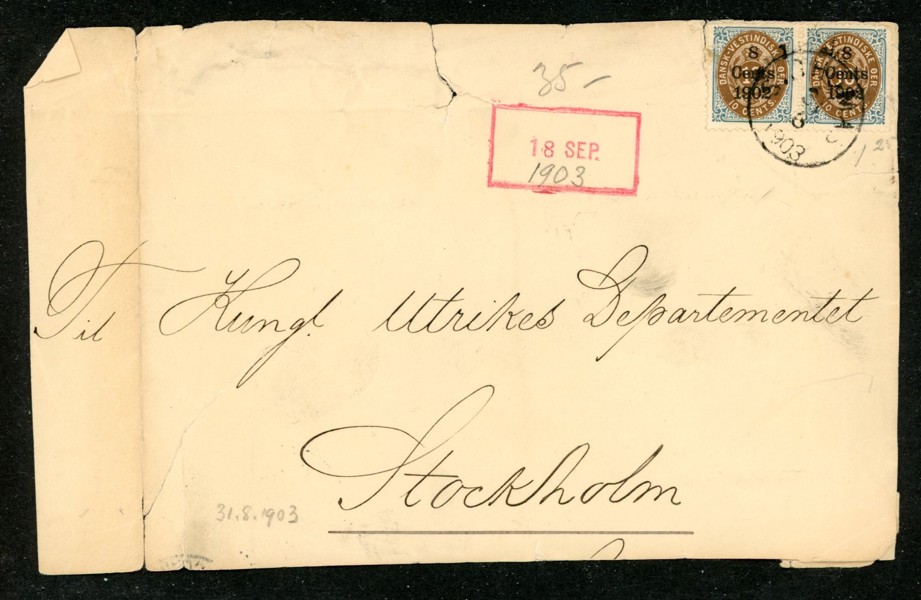 DANSK-VESTINDISKE ØER
8
Cents
1902
10 CENTS
8
Cents
10 CENTS
1903
35-
18 SEP.
1903
Til Kungl. Utrikes Departementet
Stockholm
31.8.1903